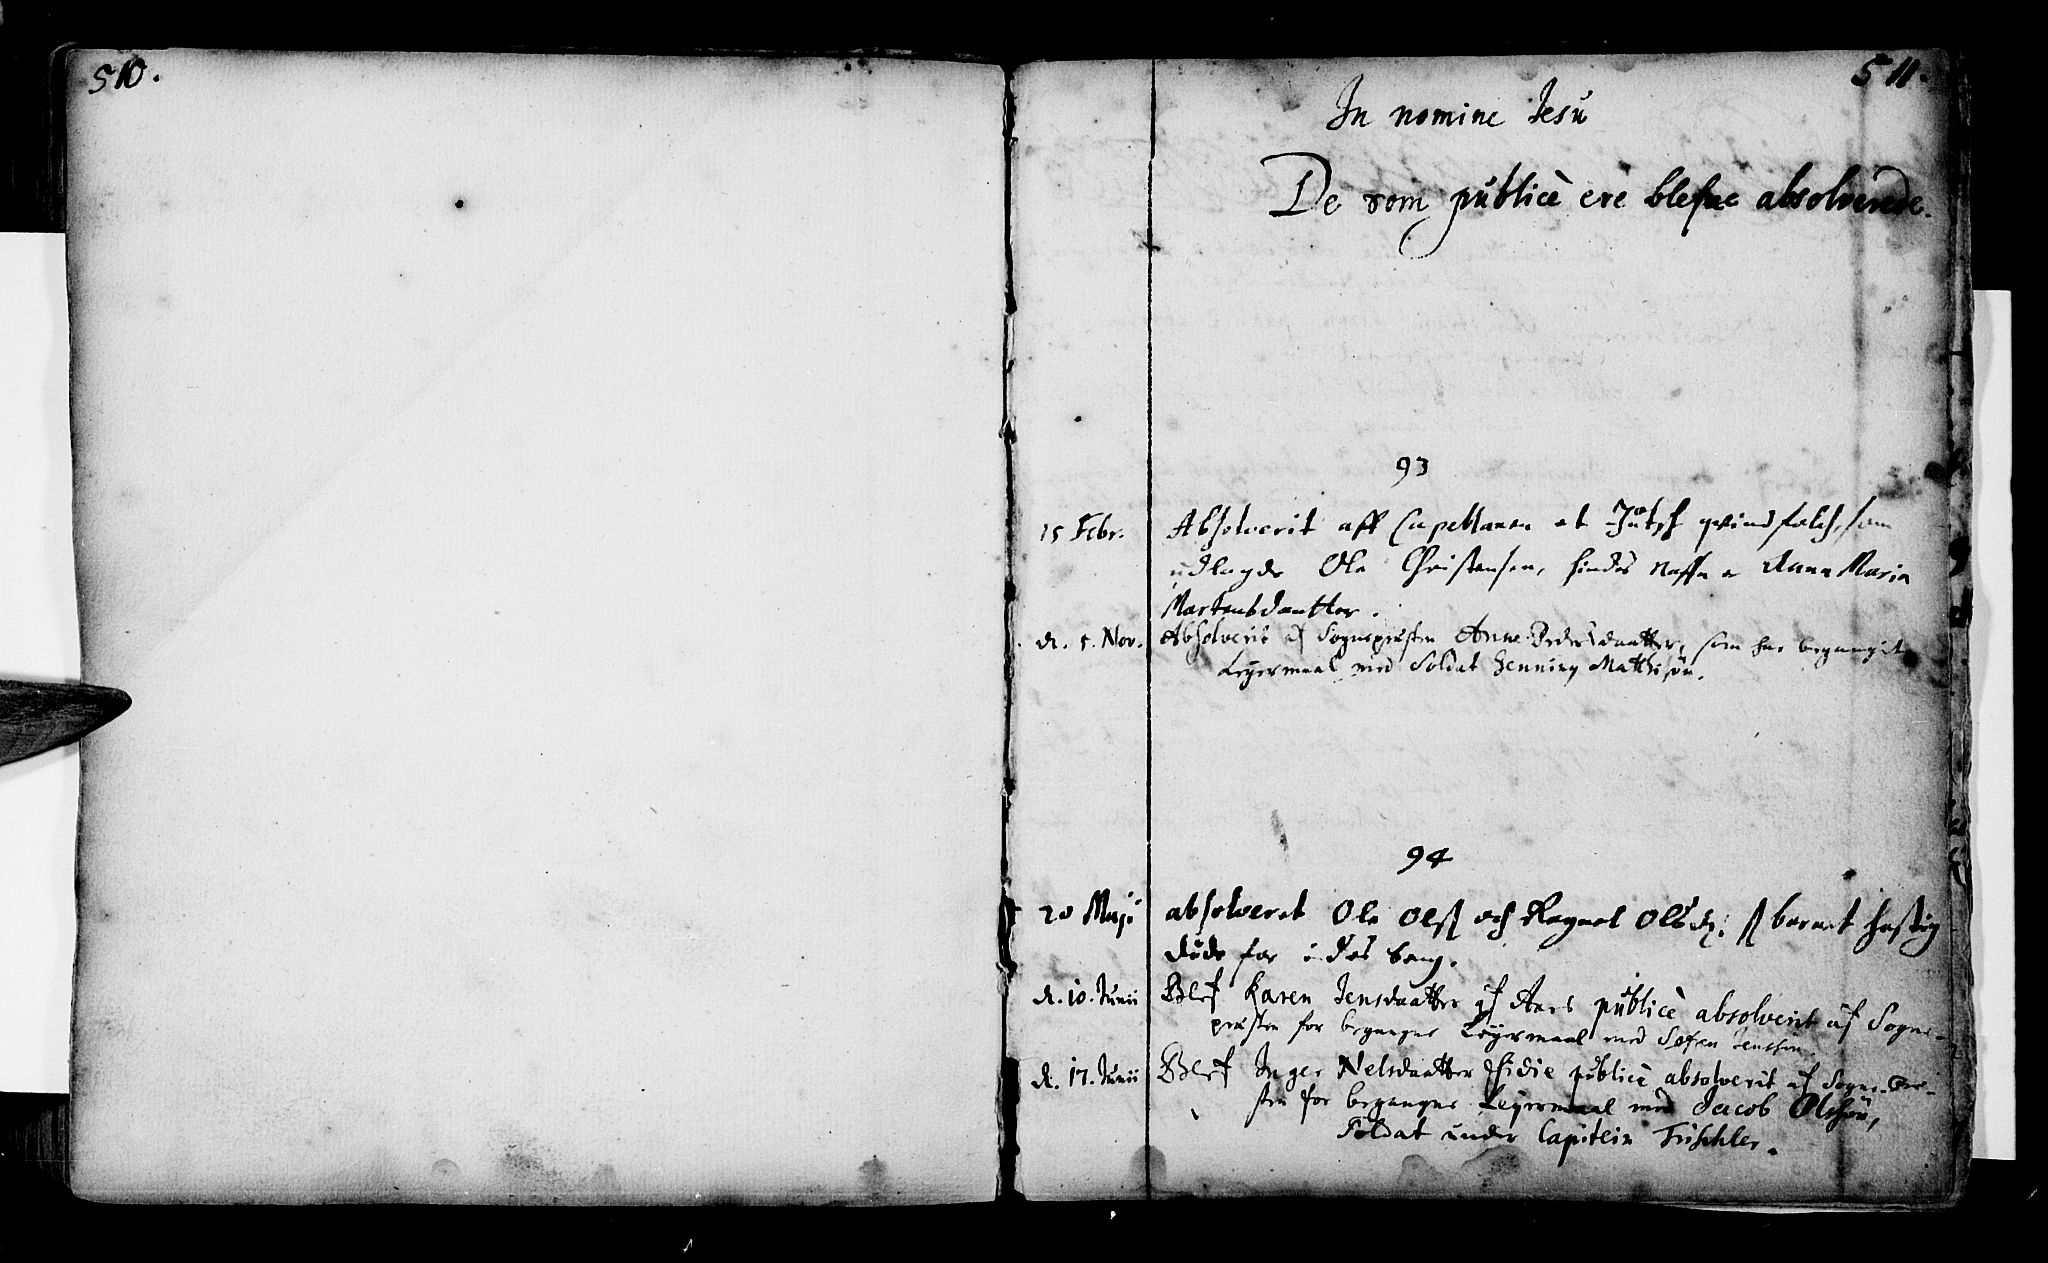 510.
511.
In nomine Iesu
De som publicè ere blefne absolverede.
93
15 Febr. Absolverit aff Capellanen et Jütsk qvindfolch, som
udlagde Ole Christensen, hindes naffn er Anna Maria
Martensdautter.
d. 5. Nov. Absolverit af Sognepresten Anne Pedersdaatter, som har begangit
Leyermaal med Soldat Henning Mathisøn.
94
20 Maji absolveret Ole Ols och Ragnel Olsd. barnet hastig
døde for
d. 10. Junii Blef Karen Jensdaatter af Aars publicè absolverit af Sogne-
presten for begangne Leyermaal med Søfren Jenssøn.
d. 17. Junii Blef Inger Nelsdaatter publicè absolverit af Sogne-Pre-
sten for begangne Leyermaal med Jacob Olssøn,
Soldat under Capitein Frischler.